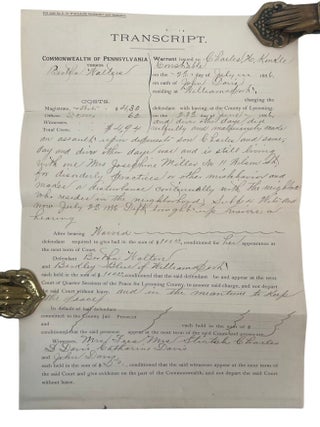 TRANSCRIPT.
COMMONWEALTH OF PENNSYLVANIA
VERSUS
Bertha Walters
Warrant issued to Charles H. Kinkle
Constable
on the 22 day of July 1896
on oath of John Davis
residing at Williamsport
charging the
defendant with having, at the County of Lycoming,
on the 22d day of June
and divers other days did
COSTS.
Magistrate, $4.30
Officer, 62
Witnesses,
Total Costs, $4.94
unlawfully and maliciously make
an assault upon deponent on Charles and
day and divers other days and is still living
with one Mrs Josephine Miller No 11
for disorderly practices or other misbehavior and
makes a disturbance continually with the neighbors
who reside in the neighborhood
now July 22 96 Deft brought up waives a
hearing
After hearing Waived
defendant required to give bail in the sum of $100.00, conditioned for her appearance at
the next term of Court.
Defendant Bertha Walters
and of Williamsport
each held in the sum of $100.00, conditioned that the said defendant be and appear at the next
Court of Quarter Sessions of the Peace for Lycoming County, to answer said charge, and not depart
said Court without leave, and in the meantime to keep
the peace
In default of bail defendant
committed to the County Jail. Prosecutor
and each held in the sum of $
conditioned that the said prosecutor appear at the next term of the said Court and prosecute.
Witnesses, Mrs Mrs Charles
Davis Catharine Davis
and John Davis
each held in the sum of $50, conditioned that the said witnesses appear at the next term of
the said Court and give evidence on the part of the Commonwealth, and not depart the said Court
without leave.